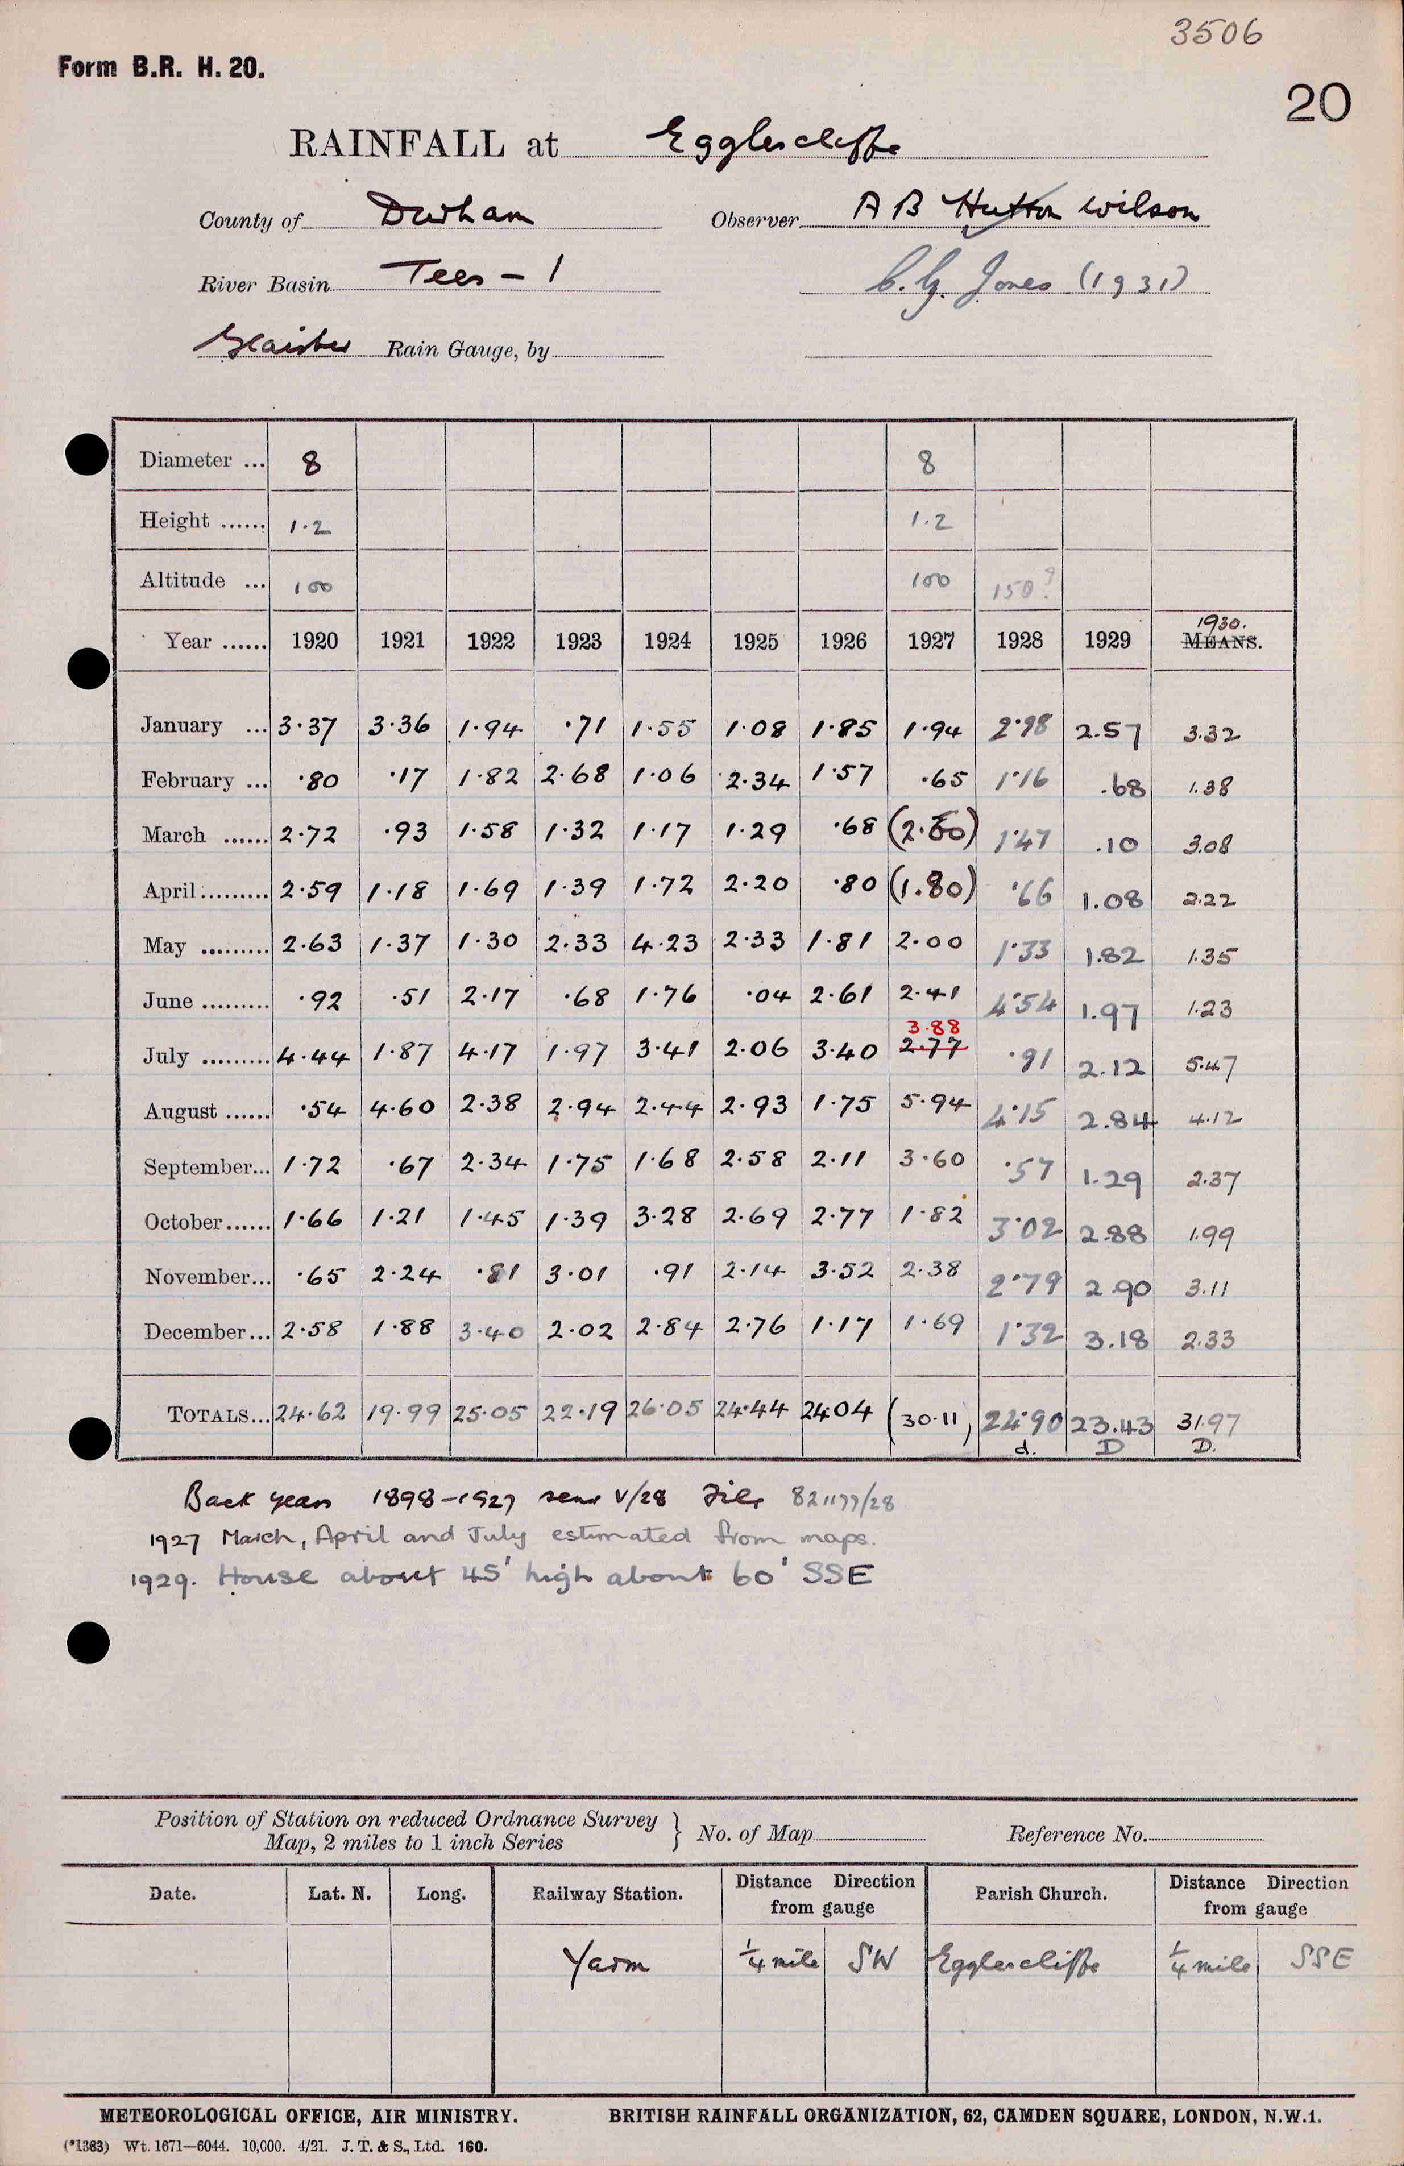 3506
Form B.R. H. 20.
20
RAINFALL at Egglescliffe
County of Durham Observer A B Hutton Wilson
River Basin Tees - 1 C. G. Jones (1931)
Glaisher Rain Gauge, by
Diameter ... 8 8
Height ...... 1.2 1.2
Altitude ... 100 100 150?
1930.
Year ...... 1920 1921 1922 1923 1924 1925 1926 1927 1928 1929 MEANS.
January ... 3.37 3.36 1.94 .71 1.55 1.08 1.85 1.94 2.98 2.57 3.32
February ... .80 .17 1.82 2.68 1.06 2.34 1.57 .65 1.16 .68 1.38
March ...... 2.72 .93 1.58 1.32 1.17 1.29 .68 (2.60) 1.47 .10 3.08
April ......... 2.59 1.18 1.69 1.39 1.72 2.20 .80 (1.80) .66 1.08 2.22
May ......... 2.63 1.37 1.30 2.33 4.23 2.33 1.81 2.00 1.33 1.82 1.35
June ......... .92 .51 2.17 .68 1.76 .04 2.61 2.41 4.54 1.97 1.23
3.88
July ......... 4.44 1.87 4.17 1.97 3.41 2.06 3.40 2.77 .91 2.12 5.47
August ...... .54 4.60 2.38 2.94 2.44 2.93 1.75 5.94 4.15 2.84 4.12
September... 1.72 .67 2.34 1.75 1.68 2.58 2.11 3.60 .57 1.29 2.37
October...... 1.66 1.21 1.45 1.39 3.28 2.69 2.77 1.82 3.02 2.88 1.99
November... .65 2.24 .81 3.01 .91 2.14 3.52 2.38 2.79 2.90 3.11
December... 2.58 1.88 3.40 2.02 2.84 2.76 1.17 1.69 1.32 3.18 2.33
TOTALS... 24.62 19.99 25.05 22.19 26.05 24.44 24.04 (30.11) 24.90 23.43 31.97
d. D D.
Back years 1898-1927 V/28 File 821177/28
1927 March, April and July estimated from maps.
1929. House about 45' high about 60' SSE
Position of Station on reduced Ordnance Survey
Map, 2 miles to 1 inch Series } No. of Map Reference No.
Date. Lat. N. Long. Railway Station. Distance Direction from gauge Parish Church. Distance Direction from gauge
Yarm 1/4 mile SW Egglescliffe 1/4 mile SSE
METEOROLOGICAL OFFICE, AIR MINISTRY. BRITISH RAINFALL ORGANIZATION, 62, CAMDEN SQUARE, LONDON, N.W.1.
(*1383) Wt. 1671—6044. 10,000. 4/21. J. T. & S., Ltd. 160.